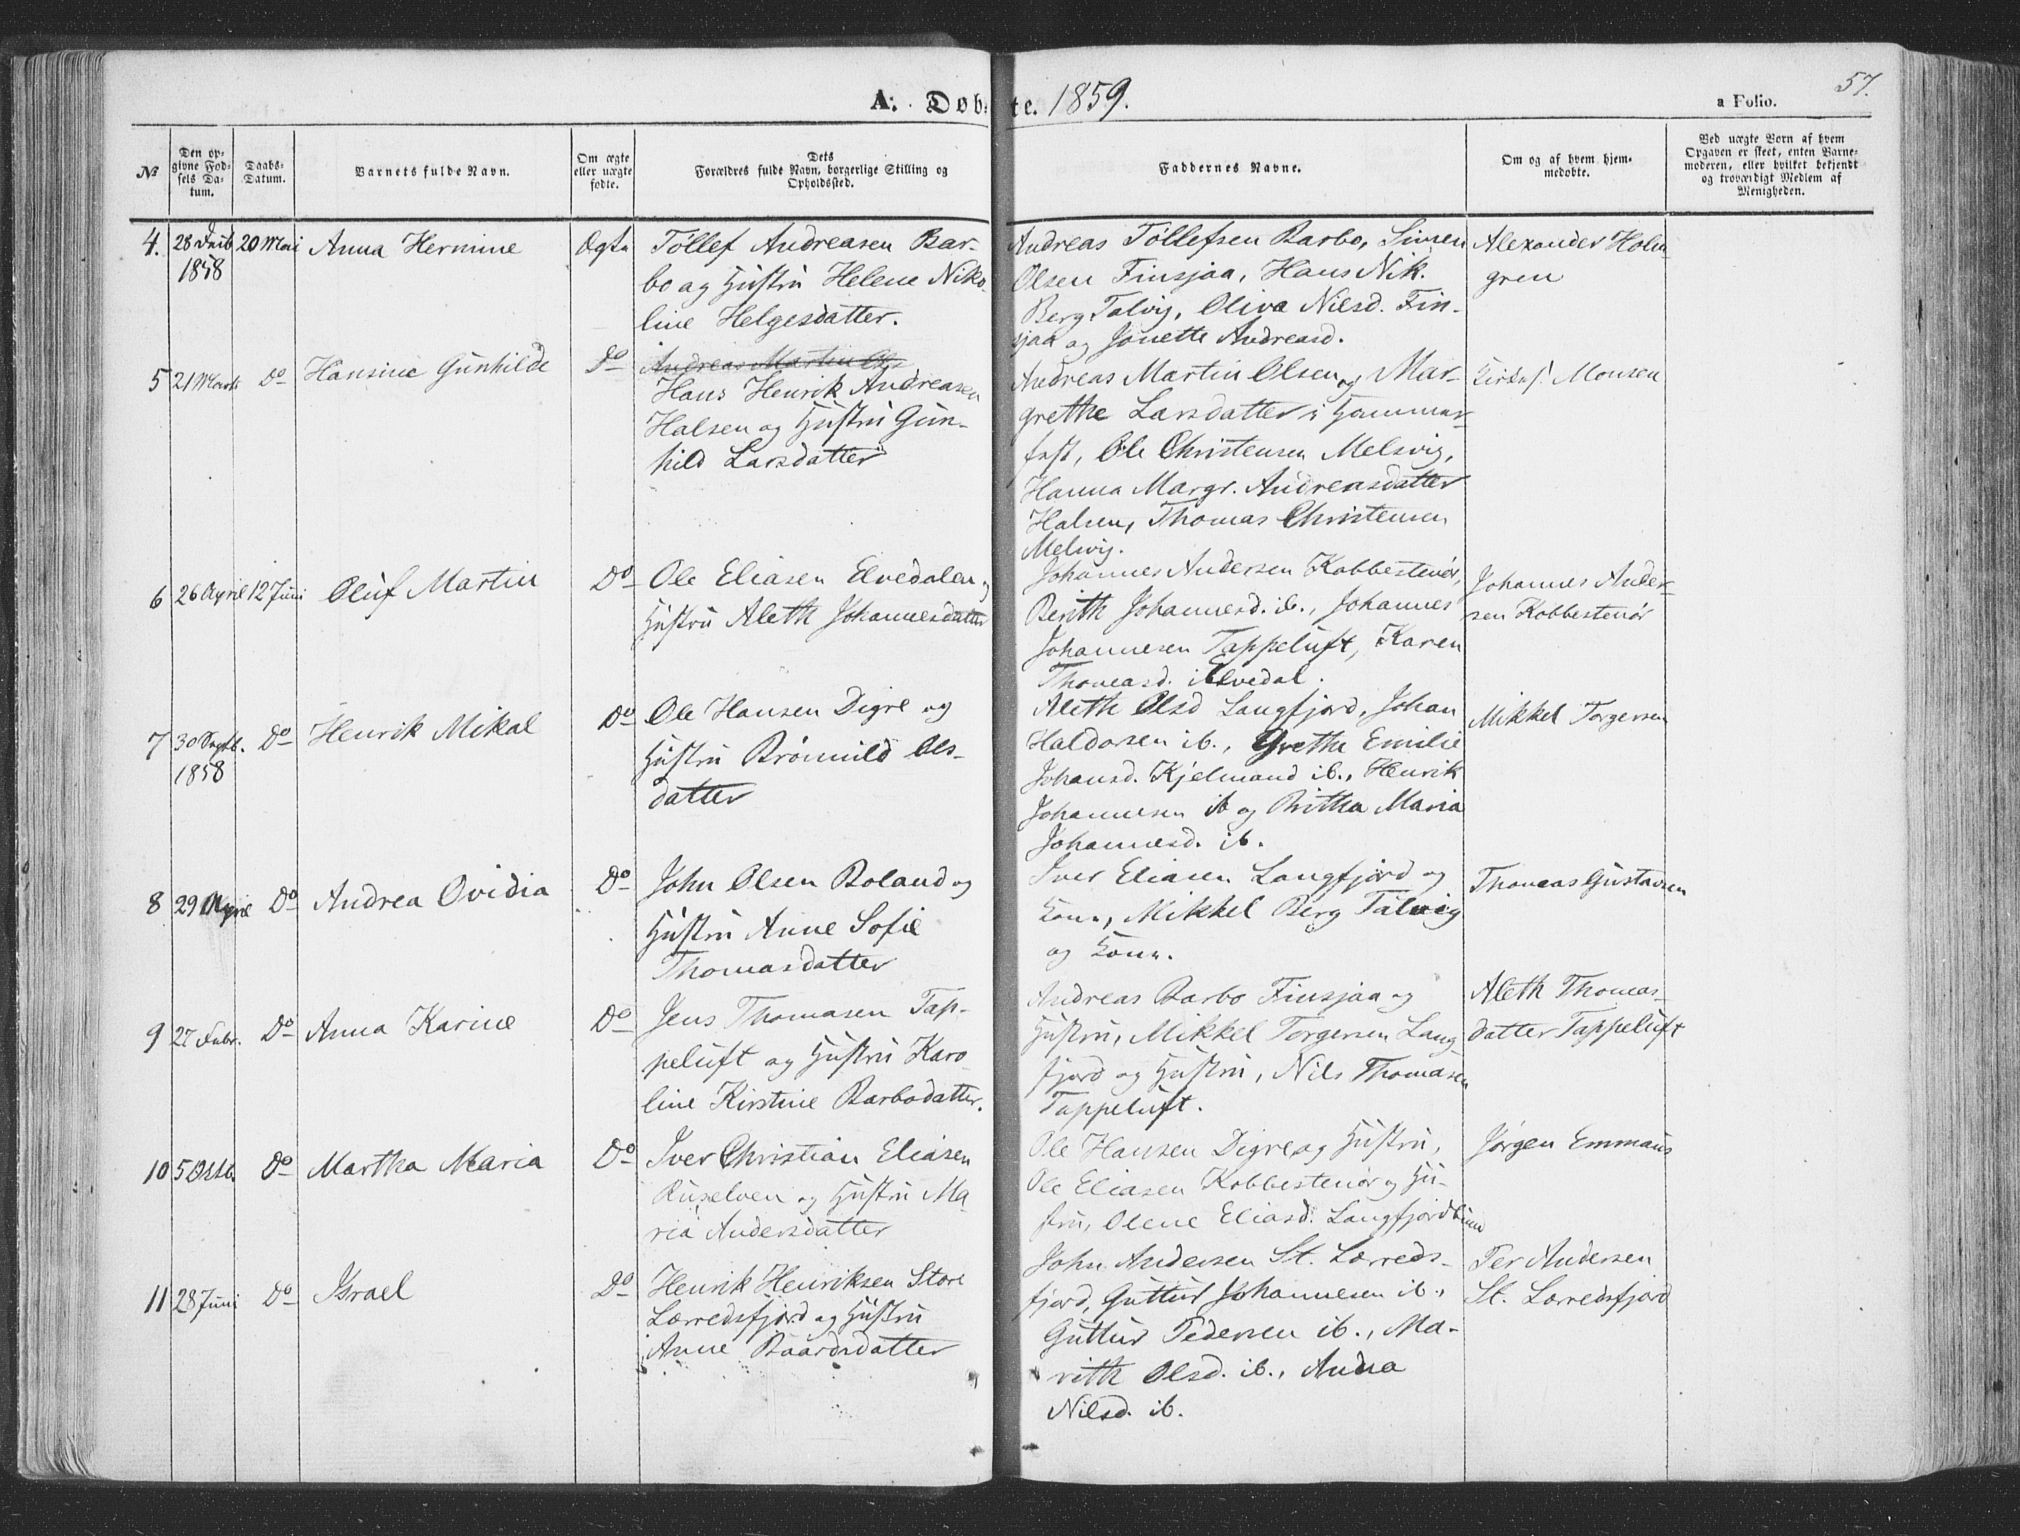 A. Døbte. 1859.
a Folio. 57.
No
Den op-
givne Fød-
sels Da-
tum.
Daabs-
Datum.
Barnets fulde Navn.
Om ægte
eller uægte
fødte.
Dets
Forældres fulde Navn, borgerlige Stilling og
Opholdssted.
Faddernes Navne.
Om og af hvem hjem-
medøbte.
Ved uægte Børn af hvem
Opgaven er skeet, enten Barne-
moderen, eller hvilket bekjendt
og troværdigt Medlem af
Menigheden.
4. 28 Feib 20 Mai Anna Hermine Ægte Töllef Andreasen Bar-
1858
bo og Hustru Helene Niko-
line Helgesdatter.
Andreas Töllefsen Barbo, Simen
Olsen Finsjaa, Hans Nik.
Berg Talvig, Oliva Nilsd. Fin-
sjaa og Jonette Andreasd.
Alexander Holm
gren
5 21 Marts Do Hansine Gunhilde Do Andreas Martin Ols
Hans Henrik Andreasen
Halsen og Hustru Gun-
hild Larsdatter
Andreas Martin Olsen og Mar-
grethe Larsdatter i Hammer-
fest, Ole Christensen Melsvig,
Hanna Margr. Andreasdatter
Halsen, Thomas Christensen
Melsvig.
Monsen
6 26 April 12 Juni Oluf Martin Do Ole Eliasen Elvedalen og
Hustru Aleth Johannesdatter
Johannes Andersen Kobbestenör,
Berith Johannesd. ib., Johannes
Johannesen Tappeluft, Karen
Thomasd. Elvedal.
Johannes Ander-
sen Kobbestenör
7 30 Septb. Do Henrik Mikal Do Ole Hansen Digre og
1858
Hustru Brönnild Ols-
datter
Aleth Olsd Langfjord, Johan
Haldorsen ib., Grethe Emilie
Johansd. Kjelmand ib., Henrik
Johannesen ib og Britha Maria
Johannesd. ib.
Mikkel Torgersen
8 29 April Do Andrea Ovidia Do John Olsen Boland og
Hustru Anne Sofie
Thomasdatter
Iver Eliasen Langfjord og
Kone, Mikkel Berg Talvig
og Kone.
Thomas Gustavsen
9 27 Febr. Do Anna Karine Do Jens Thomasen Tap-
peluft og Hustru Karo
line Kirstine Barbodatter.
Andreas Barbo Finsjaa og
Hustru, Mikkel Torgersen Lang-
fjord og Hustru, Nils Thomasen
Tappeluft.
Aleth Thomas-
datter Tappeluft
10 5 Octb. Do Martha Maria Do Iver Christian Eliasen
Ruselven og Hustru Ma
ria Andersdatter
Ole Hansen Digre og Hustru,
Ole Eliasen Kobbestenör og Hu-
stru, Olene Eliasd. Langfjordbund
Jørgen Emmaus
11 28 Juni Do Israel Do Henrik Henriksen Store
Lærredsfjord og Hustru
Anne Baardsdatter
John Andersen St. Lærreds-
fjord, Guttur Johannesen ib.,
Guttur Pedersen ib., Ma-
rith Olsd. ib., Anna
Nilsd. ib.
Per Andersen
St. Lærredsfjord